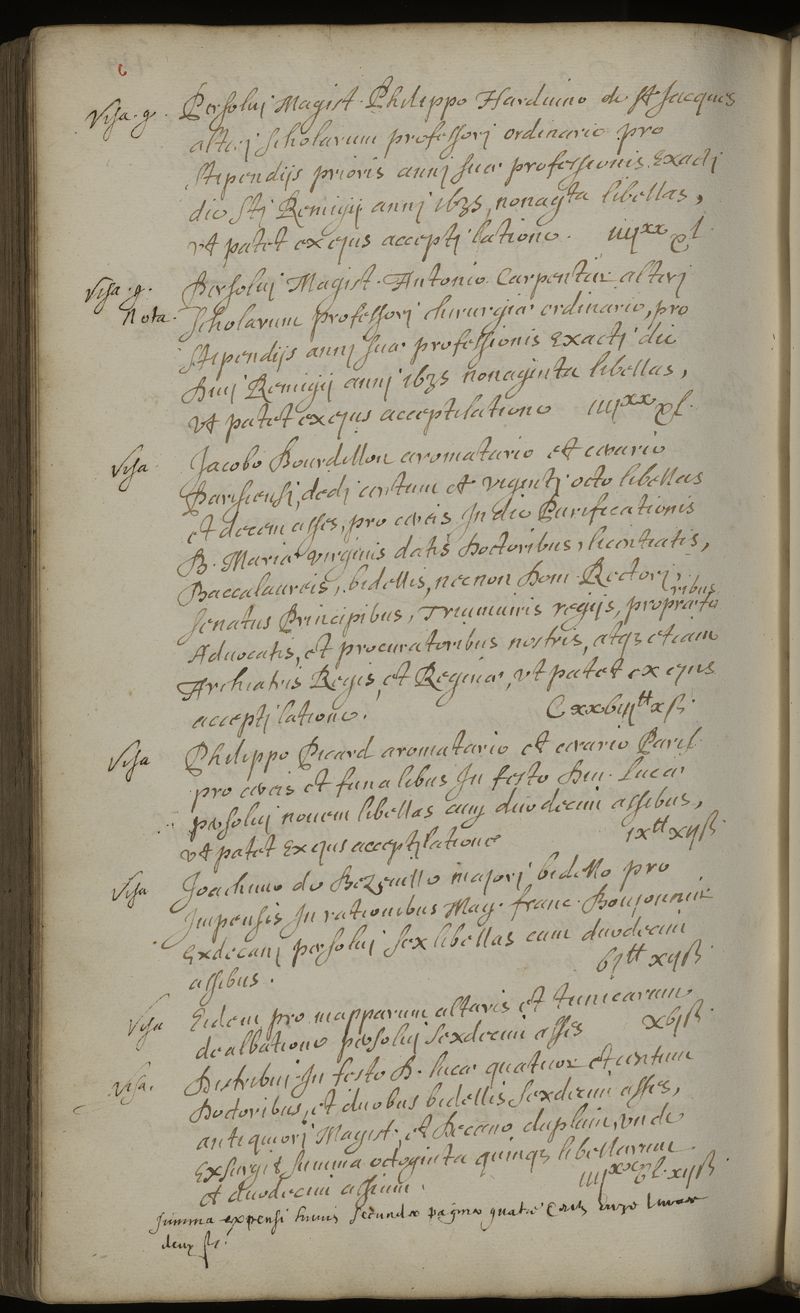 6
Visa. g. Persoluj Magist. Philippo Harduino de St Jacques
alterj scholarum professorj ordinario pro
stipendijs prioris annj suæ professionis Exactj
die Stj Remigij annj 1635, nonagta libellas,
vt patet ex ejus acceptj latione. iiijxx xl.
Visa. g. Persoluj Magist. Antonio Carpentier alterj
Nota. Scholarum professorj chirurgiæ ordinario, pro
stipendijs annj suæ professionis Exactj die
Diuj Remigij annj 1635 nonaginta libellas,
vt patet ex ejus acceptilatione iiijxx xl.
Visa Jacobo Bourdillon aromatario et cerario
Parisiensi, dedj centum et vigintj octo libellas
et decem asses, pro cereis In die Purificationis
B. Mariæ virginis datis Doctoribus, licentiatis,
Baccalaureis, bidellis, necnon Dom. Rectorj,
Senatus Principibus, Triumuiris regijs, proprætoribus
Aduocatis, et procuratoribus nostris, atq3 etiam
Archiatris Regis, et Reginæ, vt patet ex ejus
acceptj latione. Cxxbiijtt xß.
Visa Philippo Picard aromatario et cerario Paris.
pro cereis et funalibus In festo Diui Lucæ
persoluj nouem libellas cum duodecim assibus,
vt patet Ex ejus acceptjlatione ixtt xijß.
Visa Joachimo de majorj bidello pro
Impensis In rationibus Mag. franc. Boujonnier
Exdecanj persoluj sex libellas cum duodecim
assibus. bjtt xijß.
Visa Eidem pro mapparum altaris et tunicarum
dealbatione persoluj sexdecim asses xbjß.
Visa. Distribuj In festo D. lucæ quatuor et centum
Doctoribus, et duobus bidellis sexdecim asses,
antiquiorj Magist. et Decano duplum, vnde
Exsurgit summa octoginta quinq3 libellarum
et duodecim assium. iiijxx bl. xijß.
Summa expensi huius secundæ paginæ quatre Cents unze liures
deux ß.